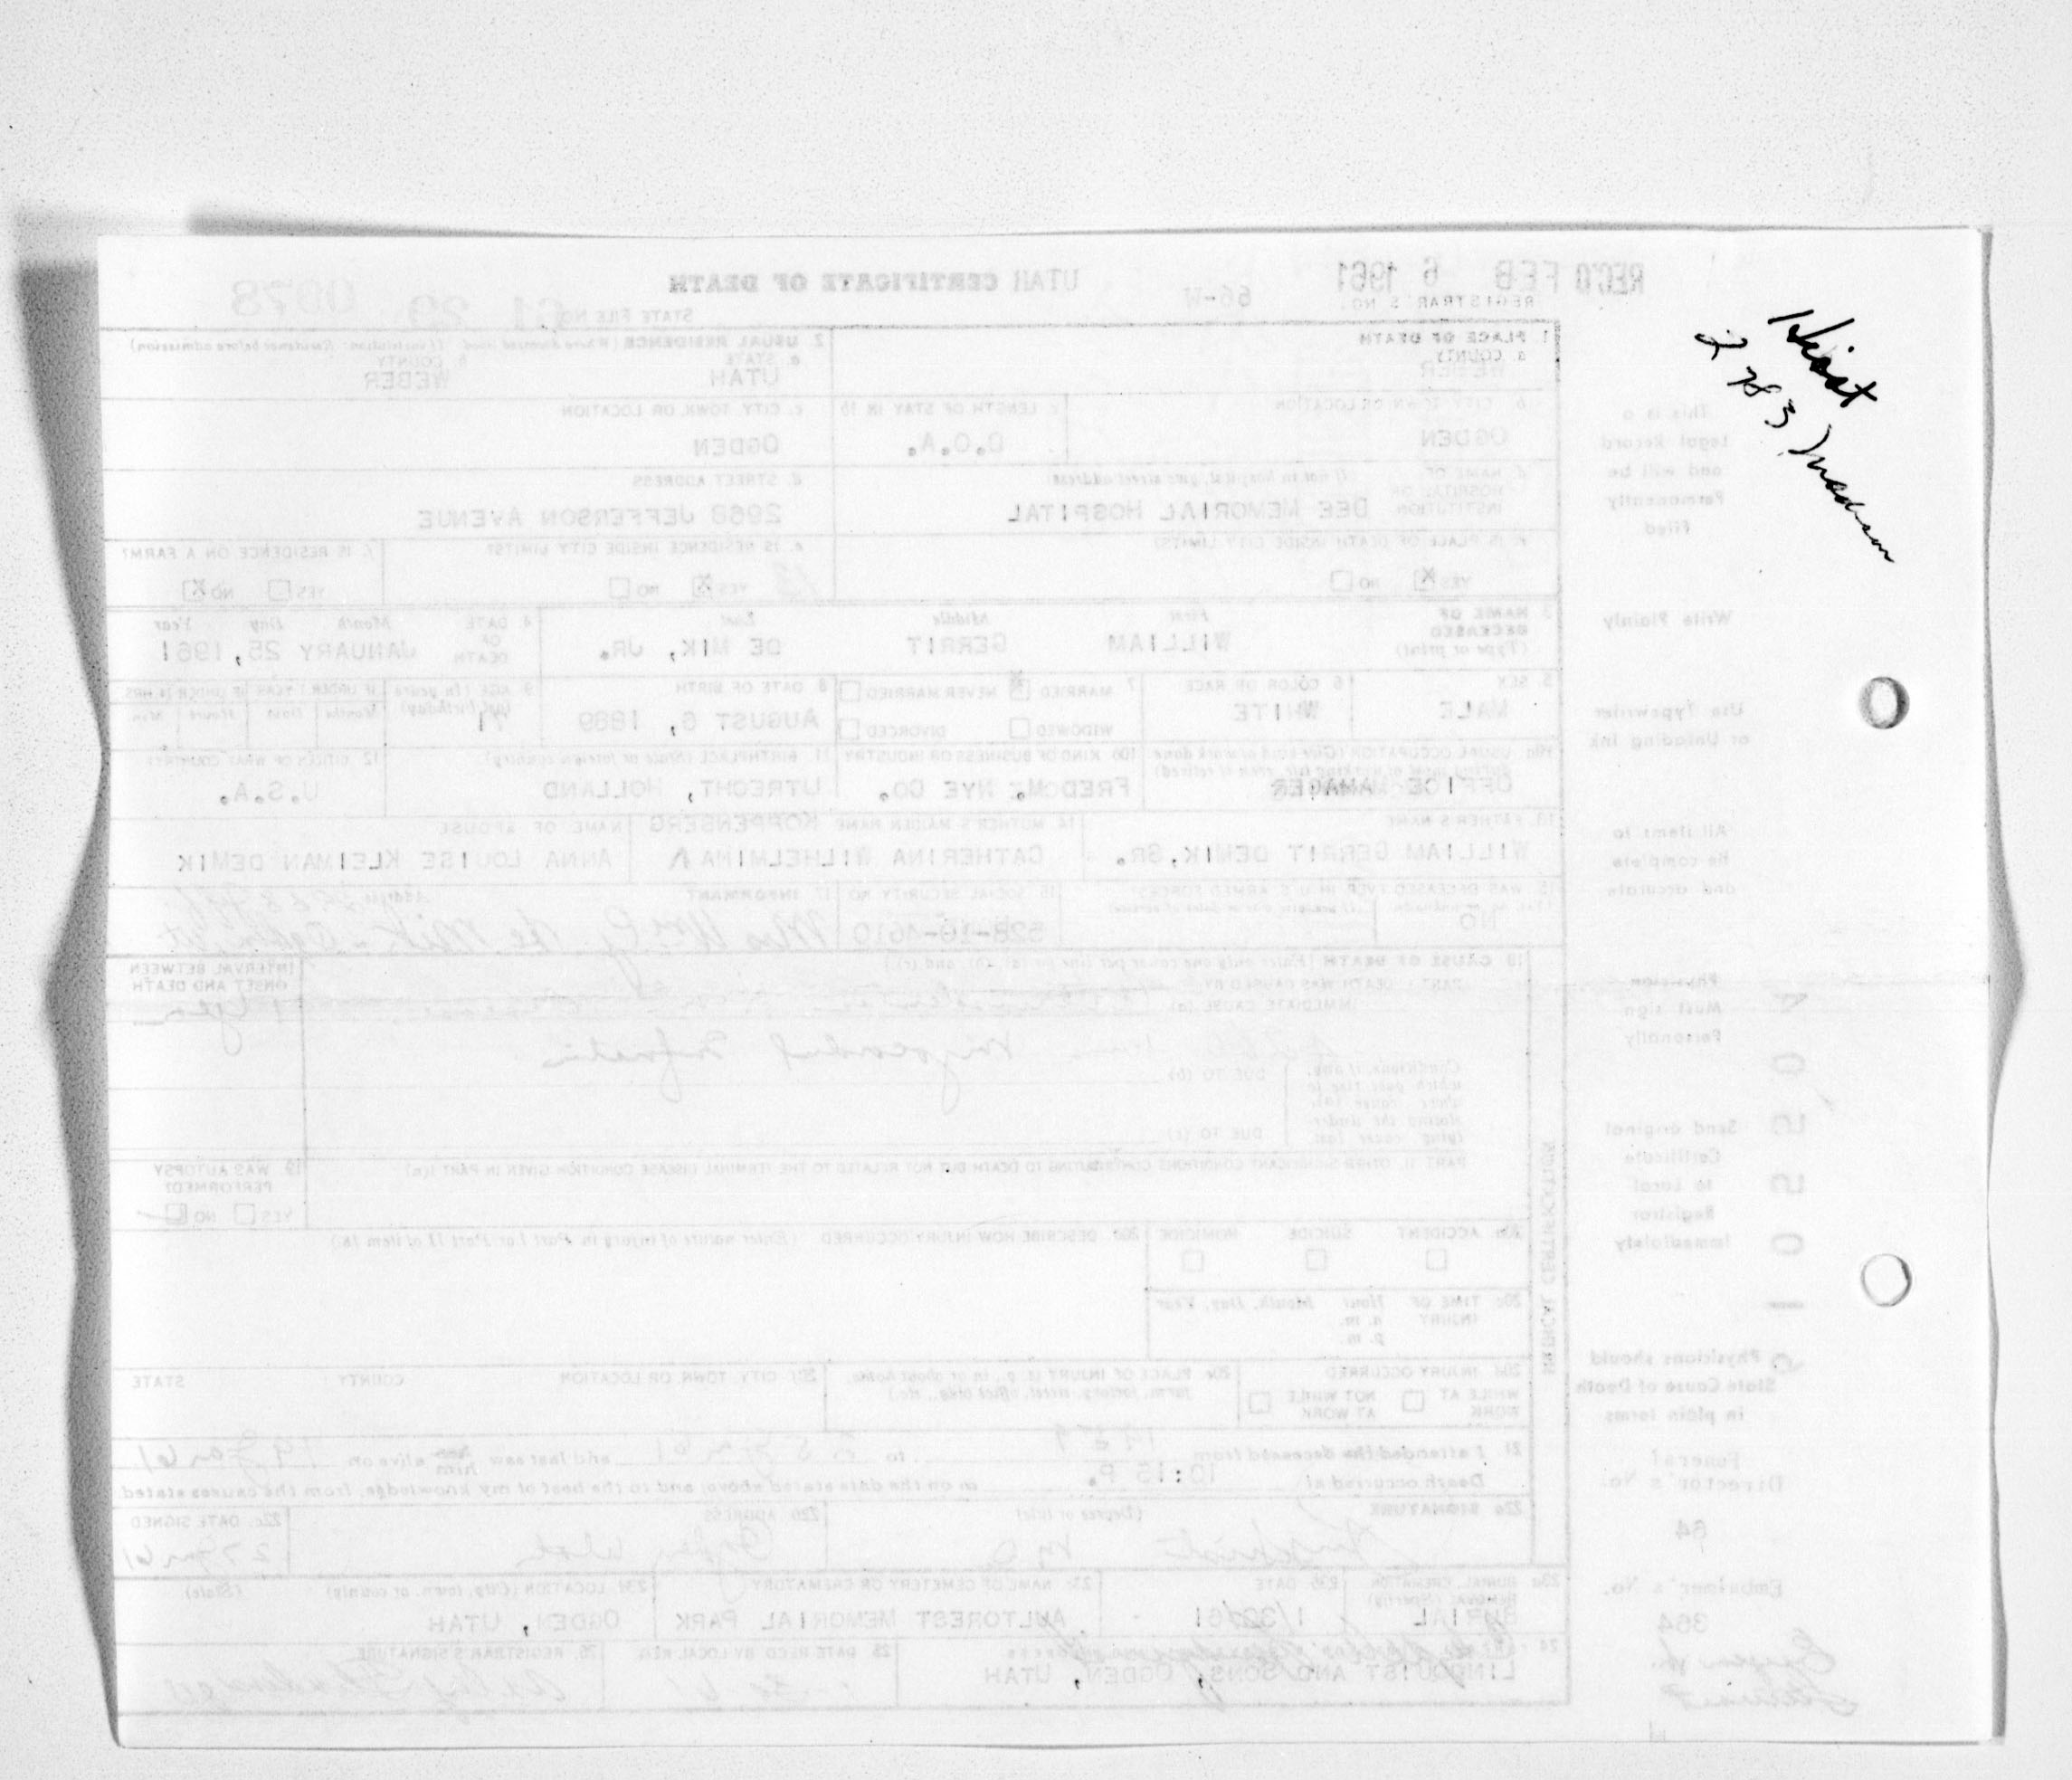 Hirst
2783 Madison
REC'D FEB 6 1961
UTAH CERTIFICATE OF DEATH
REGISTRAR'S NO. 66-W
STATE FILE NO. 61 29 0078
This is a
Legal Record
and will be
Permanently
Filed
Write Plainly
Use Typewriter
or Unfading Ink
All items to
be complete
and accurate
Physician
Must sign
Personally
Send original
Certificate
to Local
Registrar
Immediately
Physicians should
State Cause of Death
in plain terms
Funeral
Director's No.
64
Embalmer's No.
364
1. PLACE OF DEATH
a. COUNTY
WEBER
2. USUAL RESIDENCE (Where deceased lived. If institution: Residence before admission)
a. STATE
UTAH
b. COUNTY
WEBER
b. CITY, TOWN OR LOCATION
OGDEN
c. LENGTH OF STAY IN 1b
D.O.A.
c. CITY, TOWN, OR LOCATION
OGDEN
d. NAME OF HOSPITAL OR INSTITUTION (If not in hospital, give street address)
DEE MEMORIAL HOSPITAL
d. STREET ADDRESS
2968 JEFFERSON AVENUE
e. IS PLACE OF DEATH INSIDE CITY LIMITS?
YES X NO
e. IS RESIDENCE INSIDE CITY LIMITS?
YES X NO
f. IS RESIDENCE ON A FARM?
YES NO X
3. NAME OF DECEASED (Type or print)
First Middle Last
WILLIAM GERRIT DE MIK, JR.
4. DATE OF DEATH Month Day Year
JANUARY 25, 1961
5. SEX
MALE
6. COLOR OR RACE
WHITE
7. MARRIED X NEVER MARRIED
WIDOWED DIVORCED
8. DATE OF BIRTH
AUGUST 6, 1889
9. AGE (In years last birthday)
71
IF UNDER 1 YEAR IF UNDER 24 HRS
Months Days Hours Min.
10a. USUAL OCCUPATION (Give kind of work done during most of working life, even if retired)
OFFICE MANAGER
10b. KIND OF BUSINESS OR INDUSTRY
FRED M. NYE CO.
11. BIRTHPLACE (State or foreign country)
UTRECHT, HOLLAND
12. CITIZEN OF WHAT COUNTRY?
U.S.A.
13. FATHER'S NAME
WILLIAM GERRIT DEMIK, SR.
14. MOTHER'S MAIDEN NAME
CATHERINA WILHELMINA KOPPENBERG
NAME OF SPOUSE
ANNA LOUISE KLEIMAN DEMIK
15. WAS DECEASED EVER IN U.S. ARMED FORCES?
NO
16. SOCIAL SECURITY NO.
528-10-4610
17. INFORMANT Address
Mrs Wm. G. de Mik - Ogden, Ut
18. CAUSE OF DEATH [Enter only one cause per line for (a), (b), and (c).]
PART I. DEATH WAS CAUSED BY:
IMMEDIATE CAUSE (a)
INTERVAL BETWEEN ONSET AND DEATH
Myocardial Infarction
Conditions, if any,
which gave rise to
above cause (a),
stating the under-
lying cause last.
DUE TO (b)
DUE TO (c)
PART II. OTHER SIGNIFICANT CONDITIONS CONTRIBUTING TO DEATH BUT NOT RELATED TO THE TERMINAL DISEASE CONDITION GIVEN IN PART I(a)
19. WAS AUTOPSY PERFORMED?
YES NO
MEDICAL CERTIFICATION
20a. ACCIDENT SUICIDE HOMICIDE
20b. DESCRIBE HOW INJURY OCCURRED. (Enter nature of injury in Part I or Part II of item 18.)
20c. TIME OF INJURY Hour Month, Day, Year
a. m.
p. m.
20d. INJURY OCCURRED
WHILE AT WORK NOT WHILE AT WORK
20e. PLACE OF INJURY (e. g., in or about home, farm, factory, street, office bldg., etc.)
20f. CITY, TOWN, OR LOCATION COUNTY STATE
21. I attended the deceased from 1959 to 25 Jan 61 and last saw him alive on 19 Jan 61
Death occurred at 10:15 P. m on the date stated above; and to the best of my knowledge, from the causes stated.
22a. SIGNATURE (Degree or title)
M.D.
22b. ADDRESS
Ogden, Utah
22c. DATE SIGNED
27 Jan 61
23a. BURIAL, CREMATION, REMOVAL (Specify)
BURIAL
23b. DATE
23c. NAME OF CEMETERY OR CREMATORY
AULTOREST MEMORIAL PARK
23d. LOCATION (City, town, or county) (State)
OGDEN, UTAH
LINDQUIST AND SONS, OGDEN, UTAH
25. DATE RECD. BY LOCAL REG.
26. REGISTRAR'S SIGNATURE